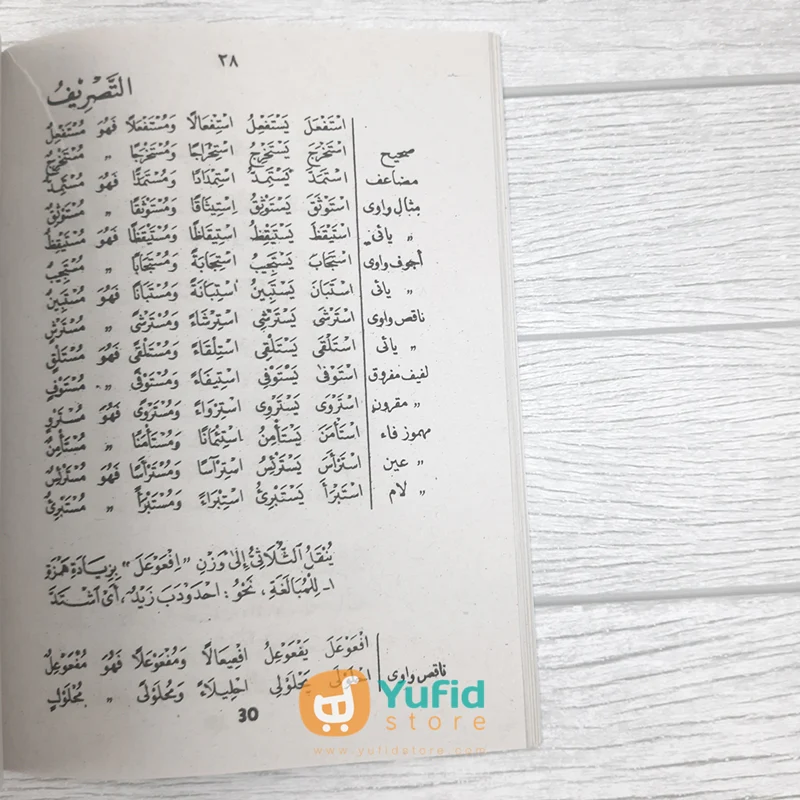 ٣٨
التَّصْرِيْفُ
اسْتَفْعَلَ يَسْتَفْعِلُ اسْتِفْعَالًا وَمُسْتَفْعَلًا فَهُوَ مُسْتَفْعِلٌ
صحيح اسْتَخْرَجَ يَسْتَخْرِجُ اسْتِخْرَاجًا وَمُسْتَخْرَجًا " مُسْتَخْرِجٌ
مضاعف اسْتَمَدَّ يَسْتَمِدُّ اسْتِمْدَادًا وَمُسْتَمَدًّا فَهُوَ مُسْتَمِدٌّ
مثال واوى اسْتَوْثَقَ يَسْتَوْثِقُ اِسْتِيْثَاقًا وَمُسْتَوْثَقًا " مُسْتَوْثِقٌ
" يائى اسْتَيْقَظَ يَسْتَيْقِظُ اسْتِيْقَاظًا وَمُسْتَيْقَظًا فَهُوَ مُسْتَيْقِظٌ
أجوف واوى اسْتَجَابَ يَسْتَجِيْبُ اسْتِجَابَةً وَمُسْتَجَابًا " مُسْتَجِيْبٌ
" يائى اسْتَبَانَ يَسْتَبِيْنُ اسْتِبَانَةً وَمُسْتَبَانًا فَهُوَ مُسْتَبِيْنٌ
ناقص واوى اسْتَرْشَى يَسْتَرْشِى اسْتِرْشَاءً وَمُسْتَرْشًى " مُسْتَرْشٍ
" يائى اسْتَلْقَى يَسْتَلْقِى اسْتِلْقَاءً وَمُسْتَلْقًى فَهُوَ مُسْتَلْقٍ
لفيف مفروق اسْتَوْفَى يَسْتَوْفِى اسْتِيْفَاءً وَمُسْتَوْفًى " مُسْتَوْفٍ
" مقرون اسْتَرْوَى يَسْتَرْوِى اسْتِرْوَاءً وَمُسْتَرْوًى فَهُوَ مُسْتَرْوٍ
مهموز فاء اسْتَأْمَنَ يَسْتَأْمِنُ اسْتِئْمَانًا وَمُسْتَأْمَنًا " مُسْتَأْمِنٌ
" عين اسْتَرْأَسَ يَسْتَرْئِسُ اسْتِرْآسًا وَمُسْتَرْأَسًا فَهُوَ مُسْتَرْئِسٌ
" لام اسْتَبْرَأَ يَسْتَبْرِئُ اسْتِبْرَاءً وَمُسْتَبْرَأً " مُسْتَبْرِئٌ
يُنْقَلُ الثُّلَاثِيُّ إِلَى وَزْنِ "اِفْعَوْعَلَ" بِزِيَادَةِ هَمْزَةِ
١- لِلْمُبَالَغَةِ، نَحْوُ: احْدَوْدَبَ زَيْدٌ، أَيْ اشْتَدَّ
افْعَوْعَلَ يَفْعَوْعِلُ افْعِيْعَالًا وَمُفْعَوْعَلًا فَهُوَ مُفْعَوْعِلٌ
ناقص واوى احْلَوْلَى يَحْلَوْلِى احْلِيْلَاءً وَمُحْلَوْلًى " مُحْلَوْلٍ
30
Yufid
store
www.yufidstore.com